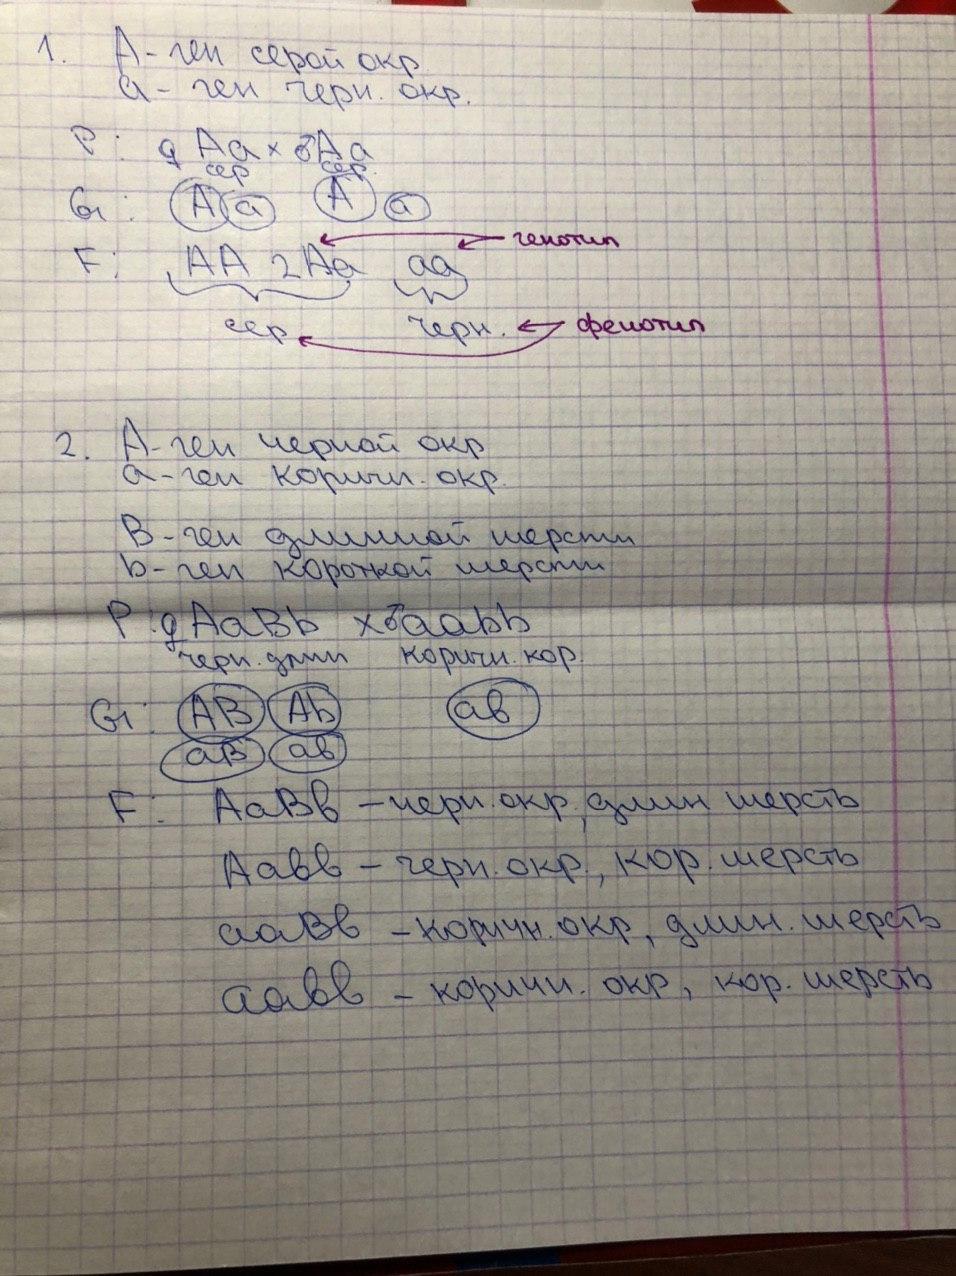 1. А - ген серой окр
а - ген черн. окр.
P: ♀ Аа × ♂ Аа
сер сер.
G: А а А а
генотип
F: АА 2Аа аа
сер черн. фенотип
2. А - ген черной окр
а - ген коричн. окр.
B - ген длинной шерсти
b - ген короткой шерсти
P: ♀ AaBb × ♂ aabb
черн. длин коричн. кор.
G: AB Ab ав
аВ ав
F: АаВв - черн. окр, длин шерсть
Аавв - черн. окр., кор. шерсть
ааВв - коричн. окр, длин. шерсть
аавв - коричн. окр, кор. шерсть